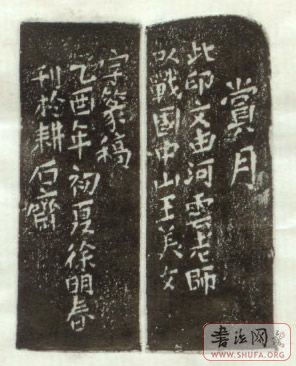 賞月
此印文由河雲老師
以戰國中山王美文
字篆稿
乙酉年初夏徐明春
刊於耕石齋
书法网
WWW.SHUFA.ORG